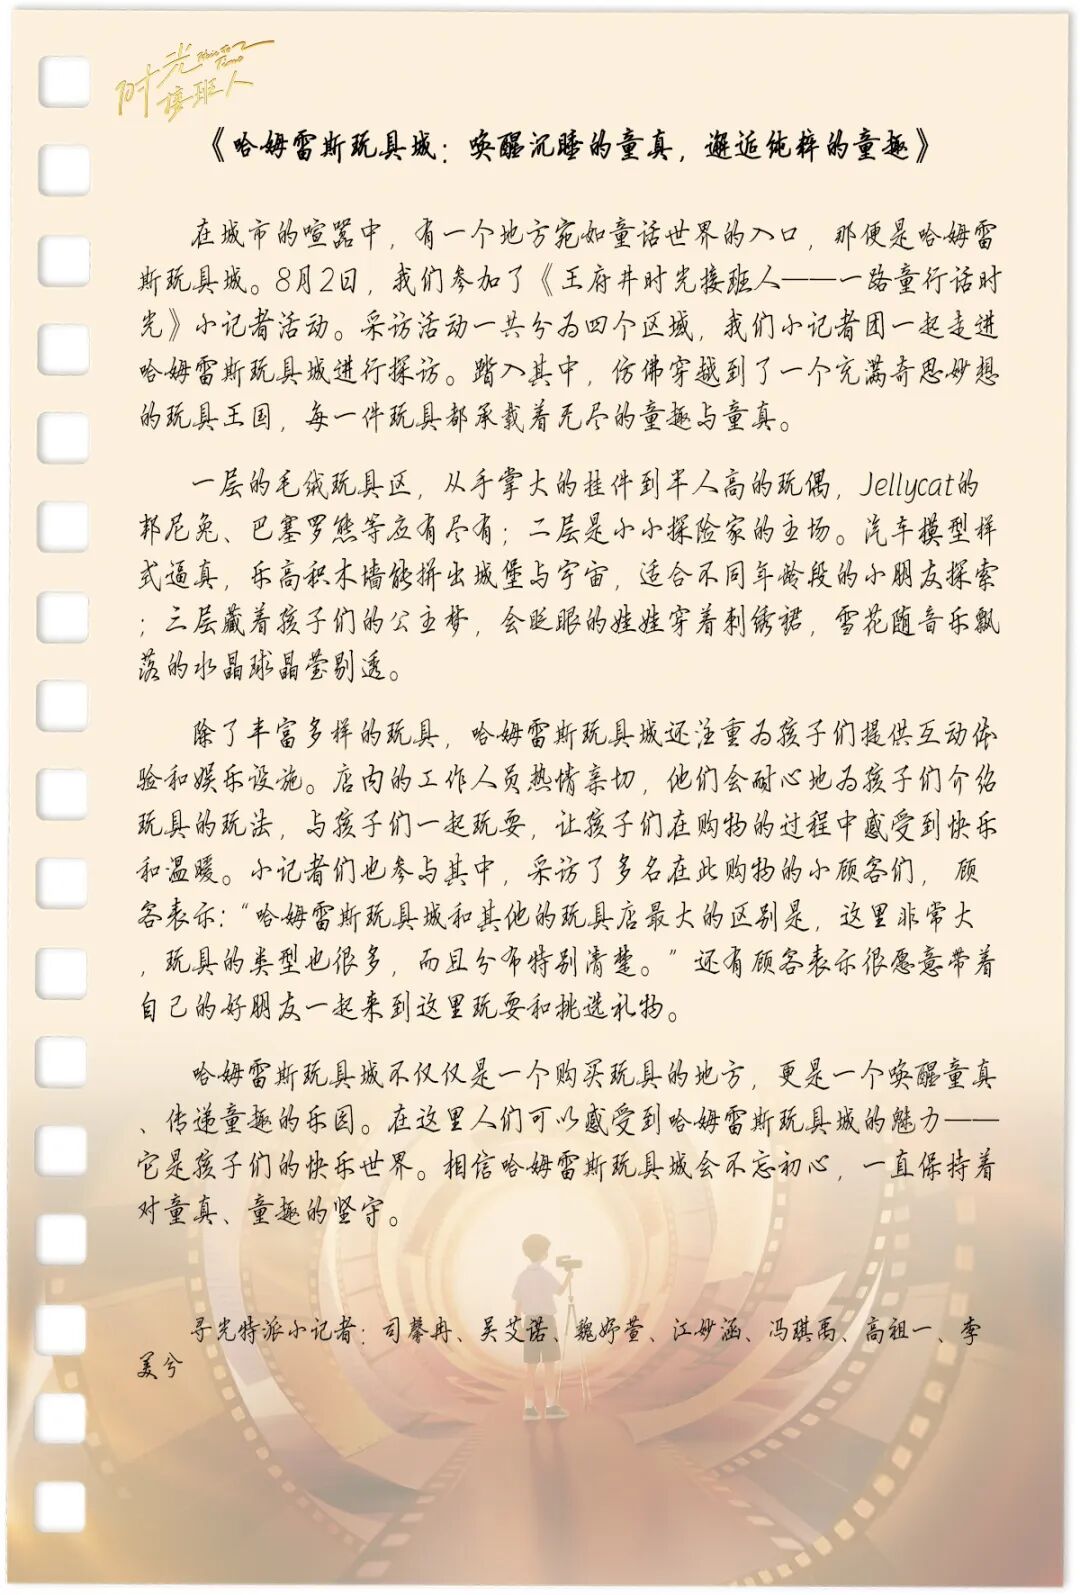 时光
接班人
《哈姆雷斯玩具城：唤醒沉睡的童真，邂逅纯粹的童趣》
在城市的喧嚣中，有一个地方宛如童话世界的入口，那便是哈姆雷
斯玩具城。8月2日，我们参加了《王府井时光接班人——一路童行话时
光》小记者活动。采访活动一共分为四个区域，我们小记者团一起走进
哈姆雷斯玩具城进行探访。踏入其中，仿佛穿越到了一个充满奇思妙想
的玩具王国，每一件玩具都承载着无尽的童趣与童真。
一层的毛绒玩具区，从手掌大的挂件到半人高的玩偶，Jellycat的
邦尼兔、巴塞罗熊等应有尽有；二层是小小探险家的主场。汽车模型样
式逼真，乐高积木墙能拼出城堡与宇宙，适合不同年龄段的小朋友探索
；三层藏着孩子们的公主梦，会眨眼的娃娃穿着刺绣裙，雪花随音乐飘
落的水晶球晶莹剔透。
除了丰富多样的玩具，哈姆雷斯玩具城还注重为孩子们提供互动体
验和娱乐设施。店内的工作人员热情亲切，他们会耐心地为孩子们介绍
玩具的玩法，与孩子们一起玩耍，让孩子们在购物的过程中感受到快乐
和温暖。小记者们也参与其中，采访了多名在此购物的小顾客们， 顾
客表示：“哈姆雷斯玩具城和其他的玩具店最大的区别是，这里非常大
，玩具的类型也很多，而且分布特别清楚。”还有顾客表示很愿意带着
自己的好朋友一起来到这里玩耍和挑选礼物。
哈姆雷斯玩具城不仅仅是一个购买玩具的地方，更是一个唤醒童真
、传递童趣的乐园。在这里人们可以感受到哈姆雷斯玩具城的魅力——
它是孩子们的快乐世界。相信哈姆雷斯玩具城会不忘初心，一直保持着
对童真、童趣的坚守。
寻光特派小记者：司馨冉、吴艾诺、魏妤萱、江妙涵、冯琪禹、高祖一、李
美兮